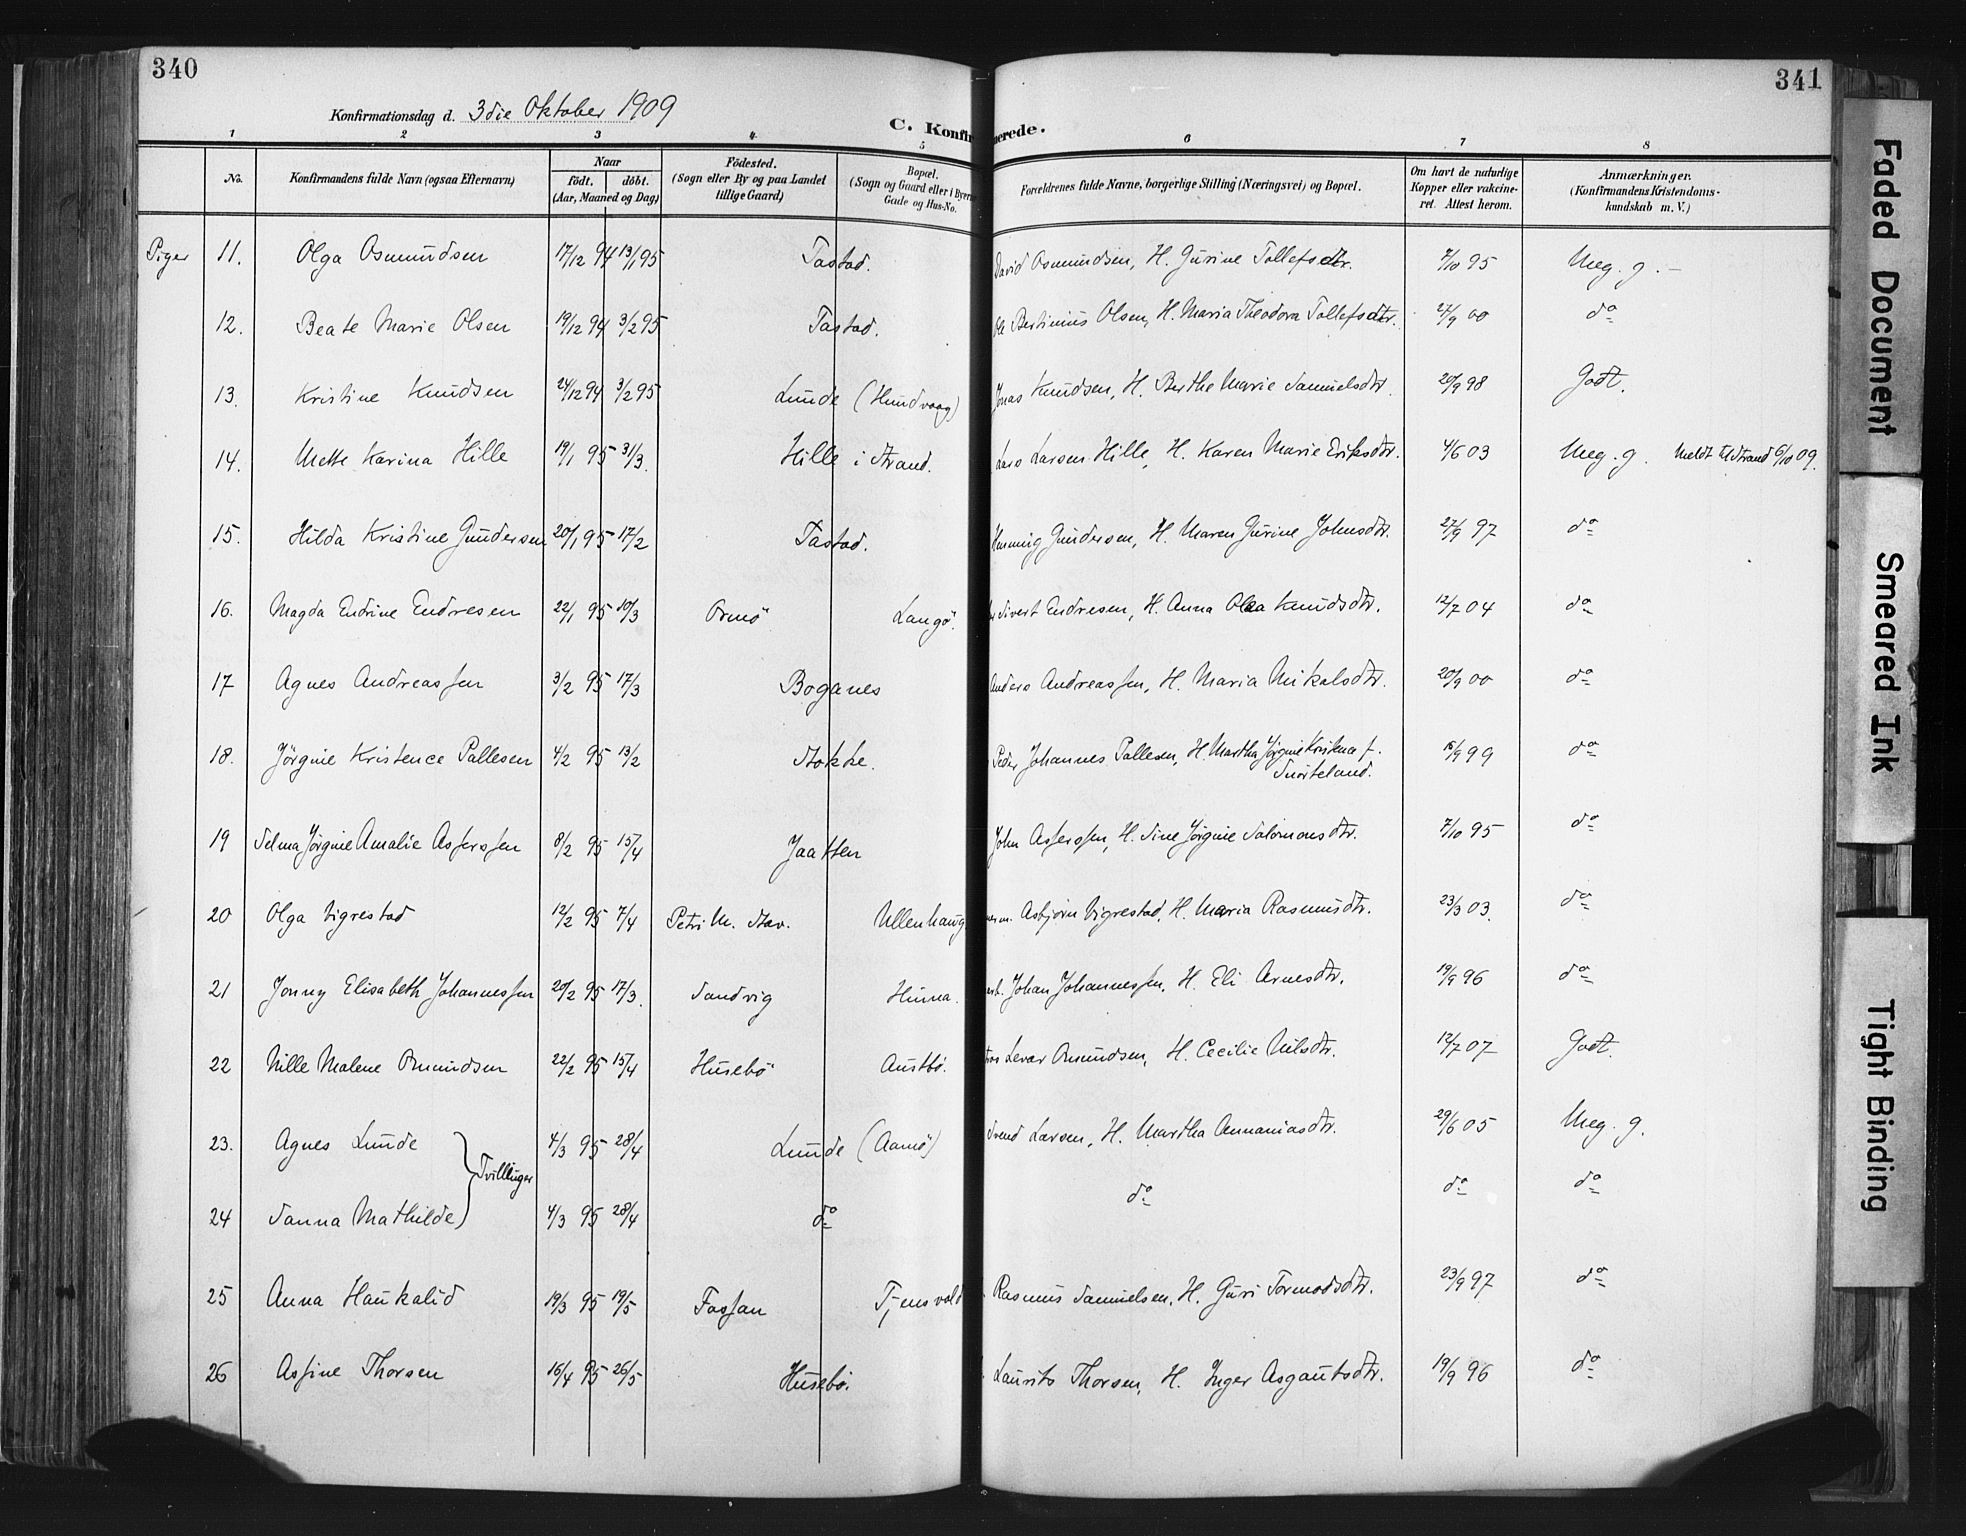 340
341
Konfirmationsdag d. 3die Oktober 1909
C. Konfirmerede.
1 2 3 4 5 6 7 8
No.
Konfirmandens fulde Navn (ogsaa Efternavn)
Naar
födt. döbt.
(Aar, Maaned og Dag)
Födested.
(Sogn eller By og paa Landet
tillige Gaard)
Bopæl.
(Sogn og Gaard eller i Byerne
Gade og Hus-No.
Forældrenes fulde Navne, borgerlige Stilling (Næringsvei) og Bopæl.
Om havt de naturlige
Kopper eller vakcine-
ret. Attest herom.
Anmærkninger.
(Konfirmandens Kristendoms-
kundskab m. V.)
Piger 11. Olga Osmundsen 17/12 94 13/1 95 Tastad. David Osmundsen, H. Gurine Tollefsdtr. 7/10 95 Meg. g. –
12. Beate Marie Olsen 19/12 94 3/2 95 Tastad. Bertinius Olsen, H. Maria Theodora Tollefsdtr. 27/9 00 do
13. Kristine Knudsen 24/12 94 3/2 95 Lunde (Hundvaag) Jonas Knudsen, H. Berthe Marie Samuelsdtr. 20/9 98 Godt.
14. Mette Karina Hille 19/1 95 31/3. Hille i Strand. Lars Larsen Hille, H. Karen Marie Eriksdtr. 4/6 03 Meg. g. Meldt til Strand 6/10 09.
15. Hilda Kristine Gundersen 20/1 95 17/2 Tastad. Henning Gundersen, H. Maren Gurine Johnsdtr. 27/9 97 do
16. Magda Endrine Endresen 22/1 95 10/3 Ormö Langö. Sivert Endresen, H. Anna Olea Knudsdtr. 12/7 04 do
17 Agnes Andreassen 3/2 95 17/3 Boganes Anders Andreassen, H. Maria Mikalsdtr. 20/9 00 do
18. Jörgine Kristence Pallesen 4/2 95 13/2 Stokke. Peder Johannes Pallesen, H. Martha Jörgine Kristence f.
Snörteland. 15/9 99 do
19 Selma Jörgine Amalie Asserssen 8/2 95 15/4 Jaatten John Asserssen, H. Sine Jörgine Salomonsdtr. 7/10 95 do
20 Olga Vigrestad 12/2 95 7/4 Petri M. Stav. Ullenhaug Asbjörn Vigrestad, H. Maria Rasmusdtr. 23/3 03. do
21 Jonny Elisabeth Johannessen 20/2 95 17/3. Sandvig Hinna. Johan Johannessen, H. Eli Arnesdtr. 19/9 96 do
22 Nille Malene Omundsen 22/2 95 15/4 Husebö Austbö. Levar Omundsen, H. Cecilie Nilsdtr. 12/7 07 Godt.
23. Agnes Lunde 4/3 95 28/4 Lunde (Aamö) Svend Larsen, H. Martha Annaniasdtr. 29/6 05 Meg. g.
Tvillinger
24 Sanna Mathilde 4/3 95 28/4 do do do do
25 Anna Haukalid 19/3 95 19/5 Fossan Tjensvold Rasmus Samuelsen, H. Guri Tormodsdtr. 23/9 97 do
26 Assine Thorsen 16/4 95 26/5 Husebö. Laurits Thorsen, H. Inger Asgautsdtr. 19/9 96 do
Faded Document
Smeared Ink
Tight Binding